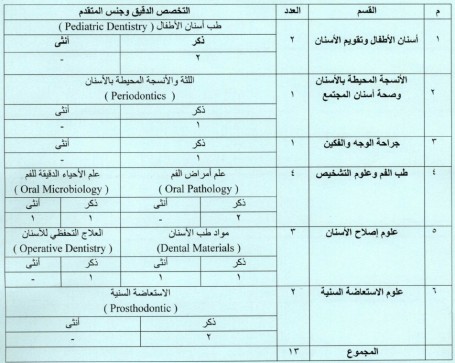 م القسم العدد التخصص الدقيق وجنس المتقدم
١ أسنان الأطفال وتقويم الأسنان ٢ طب أسنان الأطفال ( Pediatric Dentistry )
ذكر أنثى
٢ -
٢ الأنسجة المحيطة بالأسنان وصحة أسنان المجتمع ١ اللثة والأنسجة المحيطة بالأسنان
( Periodontics )
ذكر أنثى
١ -
٣ جراحة الوجه والفكين ١ ذكر أنثى
١ -
٤ طب الفم وعلوم التشخيص ٤ علم أمراض الفم علم الأحياء الدقيقة للفم
( Oral Pathology ) ( Oral Microbiology )
ذكر أنثى ذكر أنثى
٢ - ١ ١
٥ علوم إصلاح الأسنان ٣ مواد طب الأسنان العلاج التحفظي للأسنان
(Dental Materials ) ( Operative Dentistry )
ذكر أنثى ذكر أنثى
١ ١ ١ -
٦ علوم الاستعاضة السنية ٢ الاستعاضة السنية
( Prosthodontic )
ذكر أنثى
٢ -
المجموع ١٣